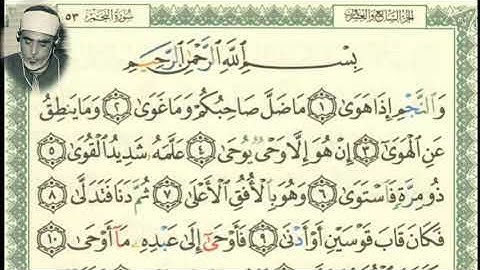 الجزء السابع والعشرون سورة النجم ٥٣
بِسْمِ اللَّهِ الرَّحْمَٰنِ الرَّحِيمِ
وَالنَّجْمِ إِذَا هَوَىٰ ١ مَا ضَلَّ صَاحِبُكُمْ وَمَا غَوَىٰ ٢ وَمَا يَنطِقُ
عَنِ الْهَوَىٰ ٣ إِنْ هُوَ إِلَّا وَحْيٌ يُوحَىٰ ٤ عَلَّمَهُ شَدِيدُ الْقُوَىٰ ٥
ذُو مِرَّةٍ فَاسْتَوَىٰ ٦ وَهُوَ بِالْأُفُقِ الْأَعْلَىٰ ٧ ثُمَّ دَنَا فَتَدَلَّىٰ ٨
فَكَانَ قَابَ قَوْسَيْنِ أَوْ أَدْنَىٰ ٩ فَأَوْحَىٰ إِلَىٰ عَبْدِهِ مَا أَوْحَىٰ ١٠